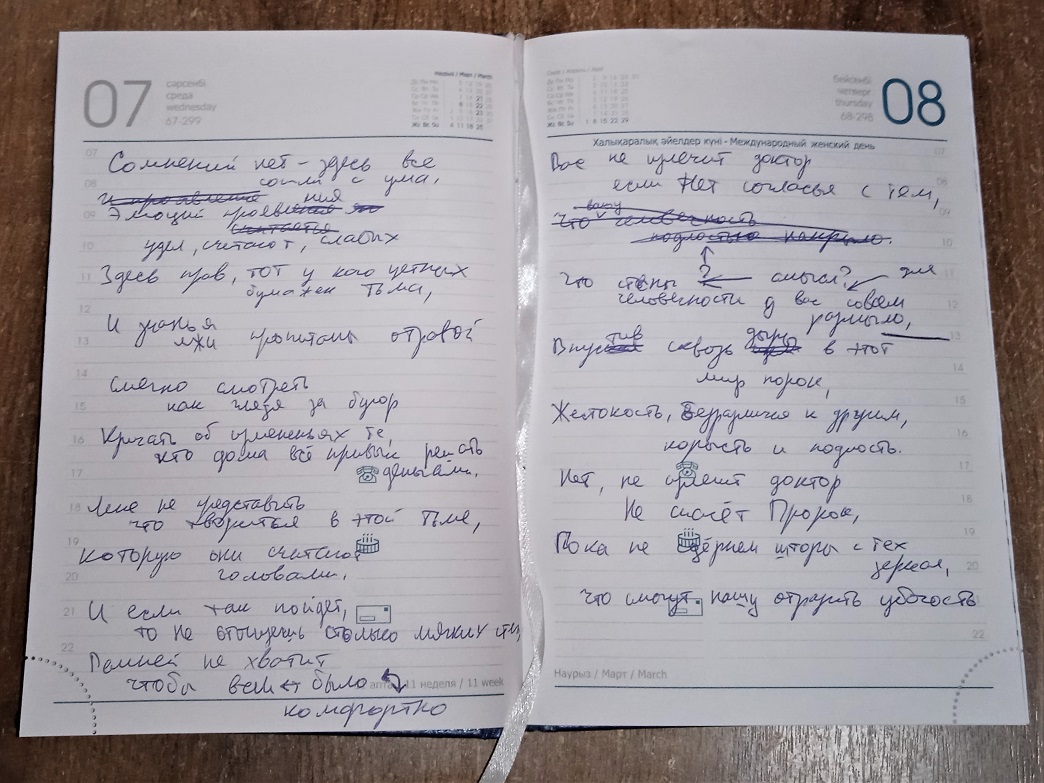 07
сәрсенбі
среда
wednesday
67-299
Наурыз / Март / March
Сомнений нет - здесь все
сошли с ума,
Эмоций проявления
удел, считают, слабых
Здесь прав, тот у кого цетных
бумажек тьма,
И знанья
лжи пропитаны отравой
Смешно смотреть
как глядя за бугор
Кричать об измененьях те,
кто дома всё привык решать
деньгами.
Мне не представить
что твориться в этой тьме,
которую они считают
головами.
И если так пойдёт,
то не отыщешь столько мягких стен,
Ремней не хватит
чтобы всем было
апта / 11 неделя / 11 week
комфортно
бейсенбі
четверг
thursday
68-298
08
Халықаралық әйелдер күні - Международный женский день
Вас не излечит доктор
если нет согласья с тем,
вашу
Что человечность
подлостью накрыло.
Что стены ? смысл? для
человечности у вас совсем
размыло,
Впустив сквозь дыры в этот
мир порок,
Жестокость, безразличия к другим,
корысть и подлость.
Нет, не излечит доктор
Не спасёт Пророк,
Пока не сдёрнем шторы с тех
зеркал,
Что смогут нашу отразить убогость
Наурыз / Март / March